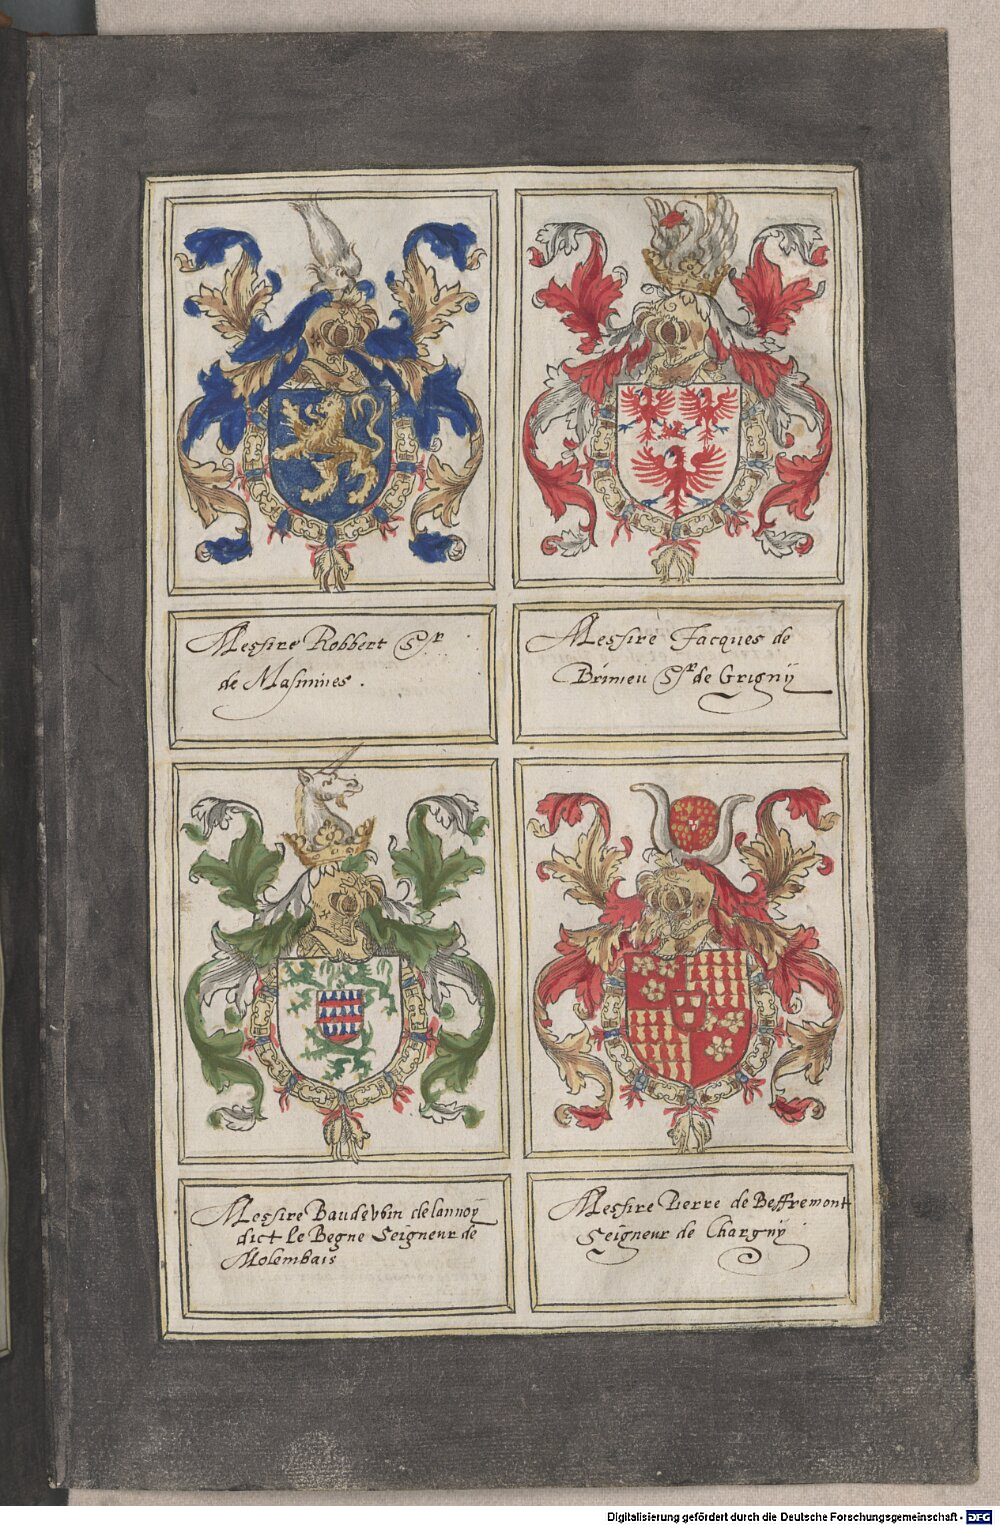 Messire Robbert Sr
de Masmines.
Messire Jacques de
Brimeu Sr de Grignÿ
Messire Baudewin de lannoÿ
dict le Begne Seigneur de
Molembais
Messire Pierre de Beffremont
Seigneur de Chargnÿ
Digitalisierung gefördert durch die Deutsche Forschungsgemeinschaft - DFG